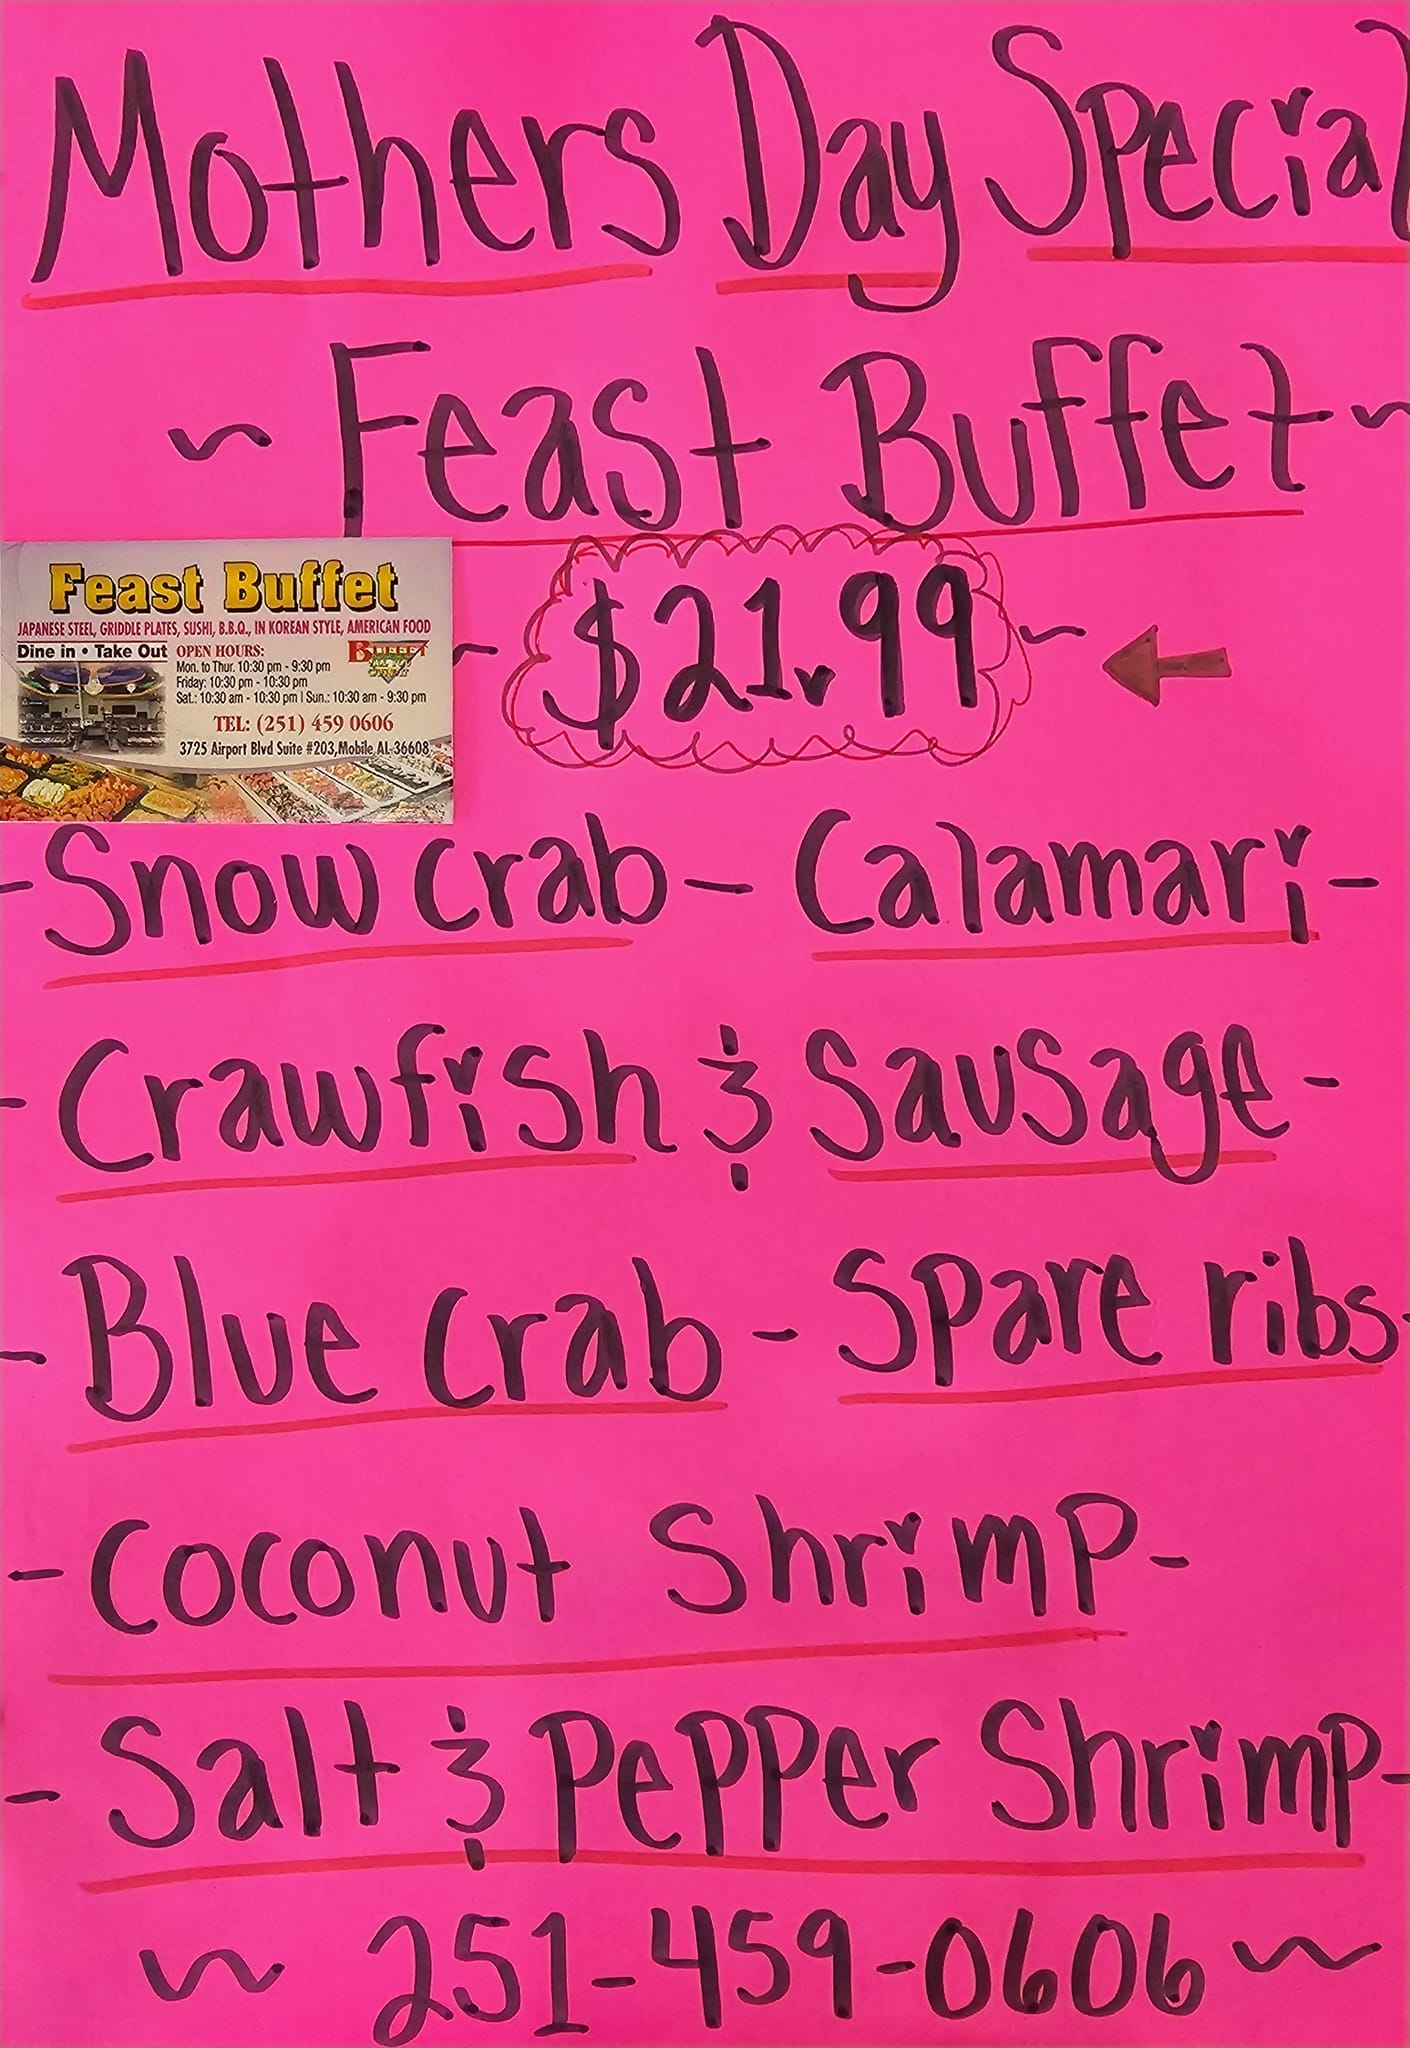 Mothers Day Special
~ Feast Buffet ~
Feast Buffet
JAPANESE STEEL, GRIDDLE PLATES, SUSHI, B.B.Q., IN KOREAN STYLE, AMERICAN FOOD
Dine in • Take Out
OPEN HOURS:
Mon. to Thur. 10:30 pm - 9:30 pm
Friday: 10:30 pm - 10:30 pm
Sat.: 10:30 am - 10:30 pm | Sun.: 10:30 am - 9:30 pm
TEL: (251) 459 0606
3725 Airport Blvd Suite #203, Mobile AL 36608
BUFFET
~ $21.99 ~
- Snow Crab - Calamari -
- Crawfish & Sausage -
- Blue Crab - Spare ribs -
- Coconut Shrimp -
- Salt & Pepper Shrimp -
~ 251-459-0606 ~